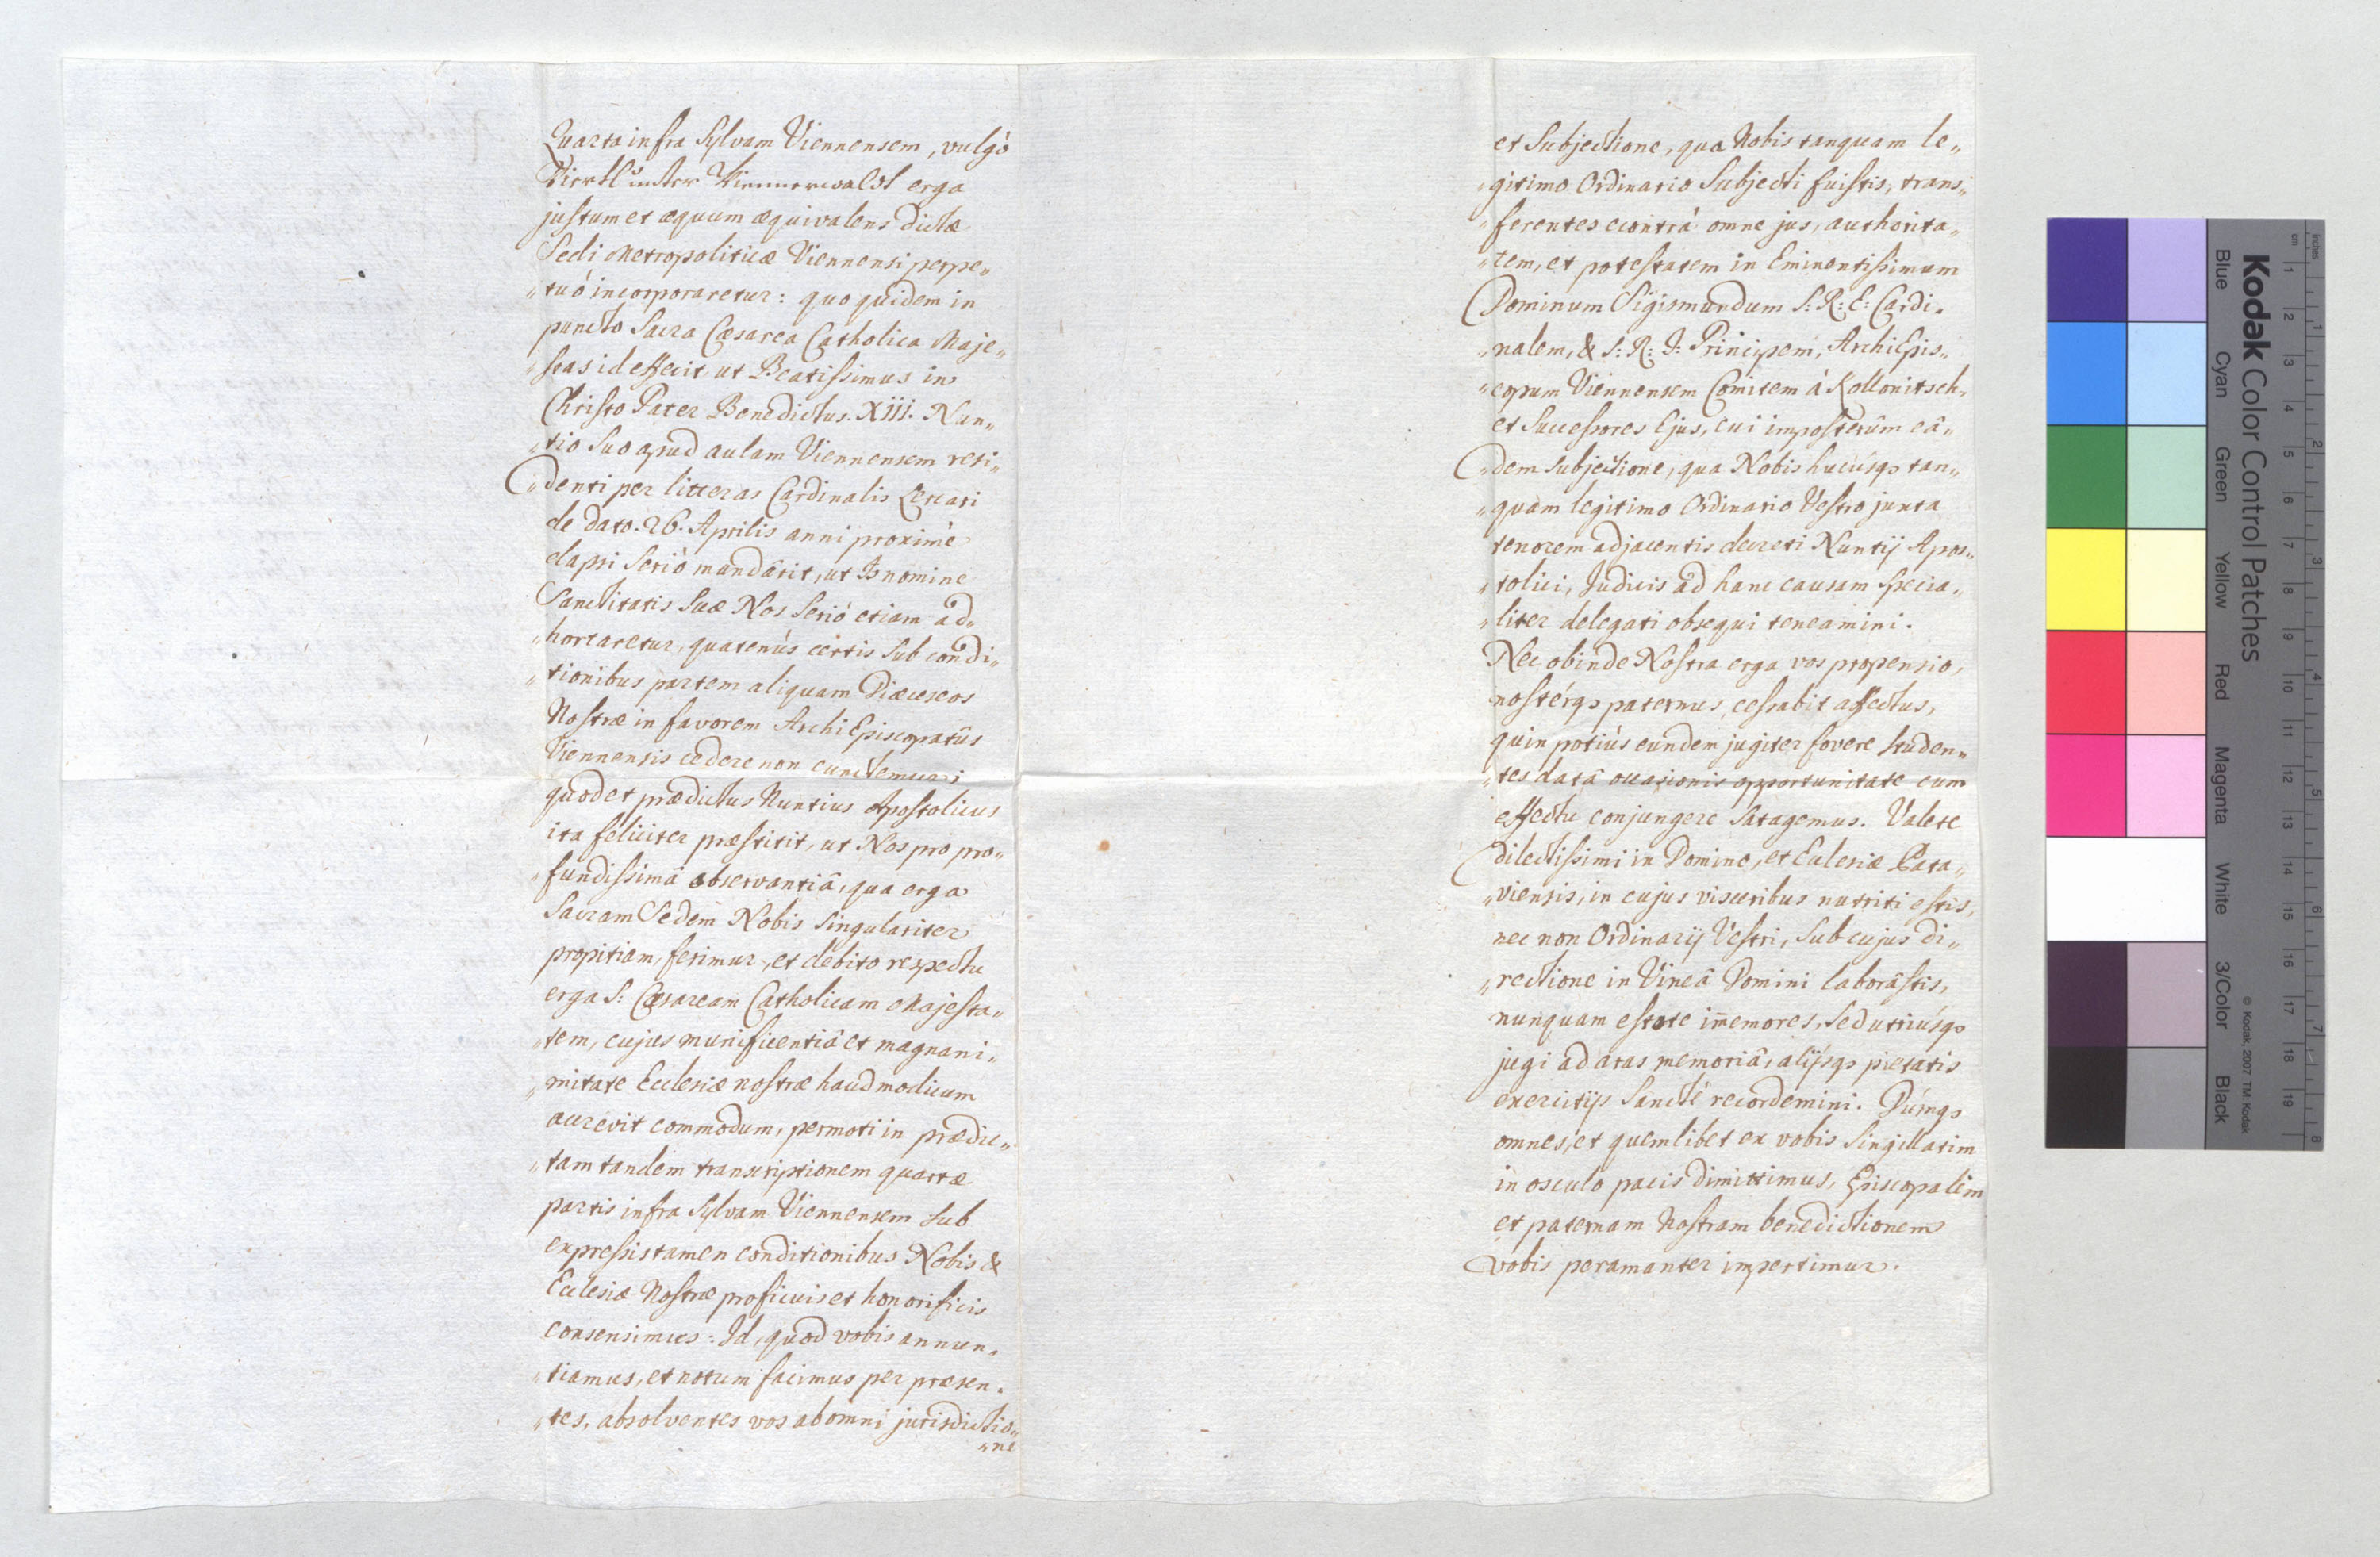 Quarta infra Sylvam Viennensem, vulgò
Viertl unter Wiennerwaldt erga
justum et æquum æquivalens dictæ
Sedi Metropoliticæ Viennensi perpe„
„tuó incorporaretur: quo quidem in
puncto Sacra Cæsarea Catholica Maje„
„stas id effecit, ut Beatissimus in
Christo Pater Benedictus. XIII. Nun„
„tio Suo apud aulam Viennensem resi„
„denti per litteras Cardinalis Lercari
de dato. 26. Aprilis anni proximè
elapsi Seriò mandârit, ut Is nomine
Sanctitatis Suæ Nos Serió etiam ad„
„hortaretur, quatenùs certis Sub condi„
„tionibus partem aliquam Diœceseos
Nostræ in favorem ArchiEpiscopatûs
Viennensis cedere non cunctemur;
quod et prædictus Nuntius Apostolicus
ita feliciter præstitit, ut Nos pro pro„
„fundissimâ observantiâ, qua erga
Sacram Sedem Nobis Singulariter
propitiam, ferimur, et debito respectu
erga S: Cæsaream Catholicam Majesta„
„tem, cujus munificentiâ et magnani„
„mitate Ecclesiæ nostræ haud modicum
accrevit commodum, permoti in prædic„
„tam tandem transcriptionem quartæ
partis infra Sylvam Viennensem Sub
expressis tamen conditionibus Nobis &
Ecclesiæ Nostræ proficuis et honorificis
consensimus: Id, quod vobis annun„
„tiamus, et notum facimus per præsen„
„tes, absolventes vos ab omni jurisdictio„
„ne
et Subjectione, qua Nobis tanquam le„
„gitimo Ordinario Subjecti fuistis, trans„
„ferentes econtrá omne jus, authorita„
„tem, et potestatem in Eminentissimum
Dominum Sigismundum S: R: E: Cardi„
„nalem, & S: R: I: Principem, ArchiEpis„
„copum Viennensem Comitem á Kollonitsch,
et Successores Ejus, cui imposterûm eâ„
„dem Subjectione, qua Nobis hucùsqȝ tan„
„quàm legitimo Ordinario Vestro juxta
tenorem adjacentis decreti Nuntij Apos„
„tolici, Judicis ad hanc causam Specia„
„liter delegati obsequi teneamini.
Nec obinde Nostra erga vos propensio,
nostérqȝ paternus cessabit affectus,
quin potiùs eundem jugiter fovere Studen„
„tes datâ occasionis opportunitate cum
effectu conjungere Satagemus. Valete
dilectissimi in Domino, et Ecclesiæ Pata„
„viensis, in cujus visceribus nutriti estis,
nec non Ordinarij Vestri, Sub cujus di„
„rectione in Vineâ Domini laborâstis,
nunquam estote im̄emores, Sed utriúsqȝ
jugi ad aras memoriâ, alijsqȝ pietatis
exercitijs Sanctè recordemini. Dúmqȝ
omnes, et quemlibet ex vobis Singillatim
in osculo pacis dimittimus, Episcopalem
et paternam Nostram benedictionem
vobis peramanter impertimur.
Kodak Color Control Patches
Blue Cyan Green Yellow Red Magenta White 3/Color Black
© Kodak, 2007 TM: Kodak
inches 1 2 3 4 5 6 7 8
cm 1 2 3 4 5 6 7 8 9 10 11 12 13 14 15 16 17 18 19